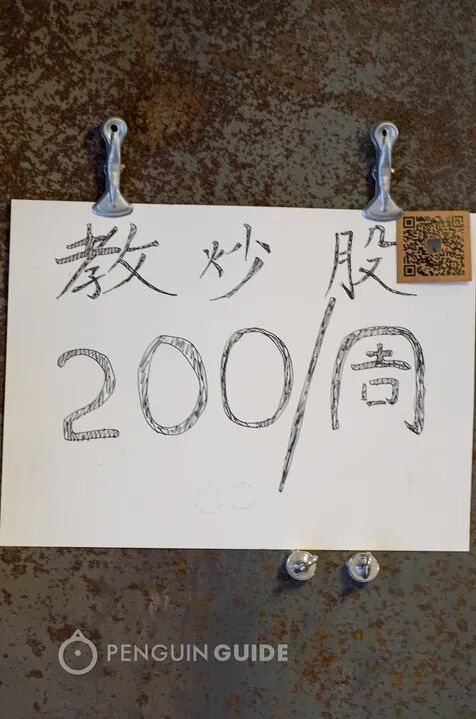 教炒股
200/周
PENGUIN GUIDE